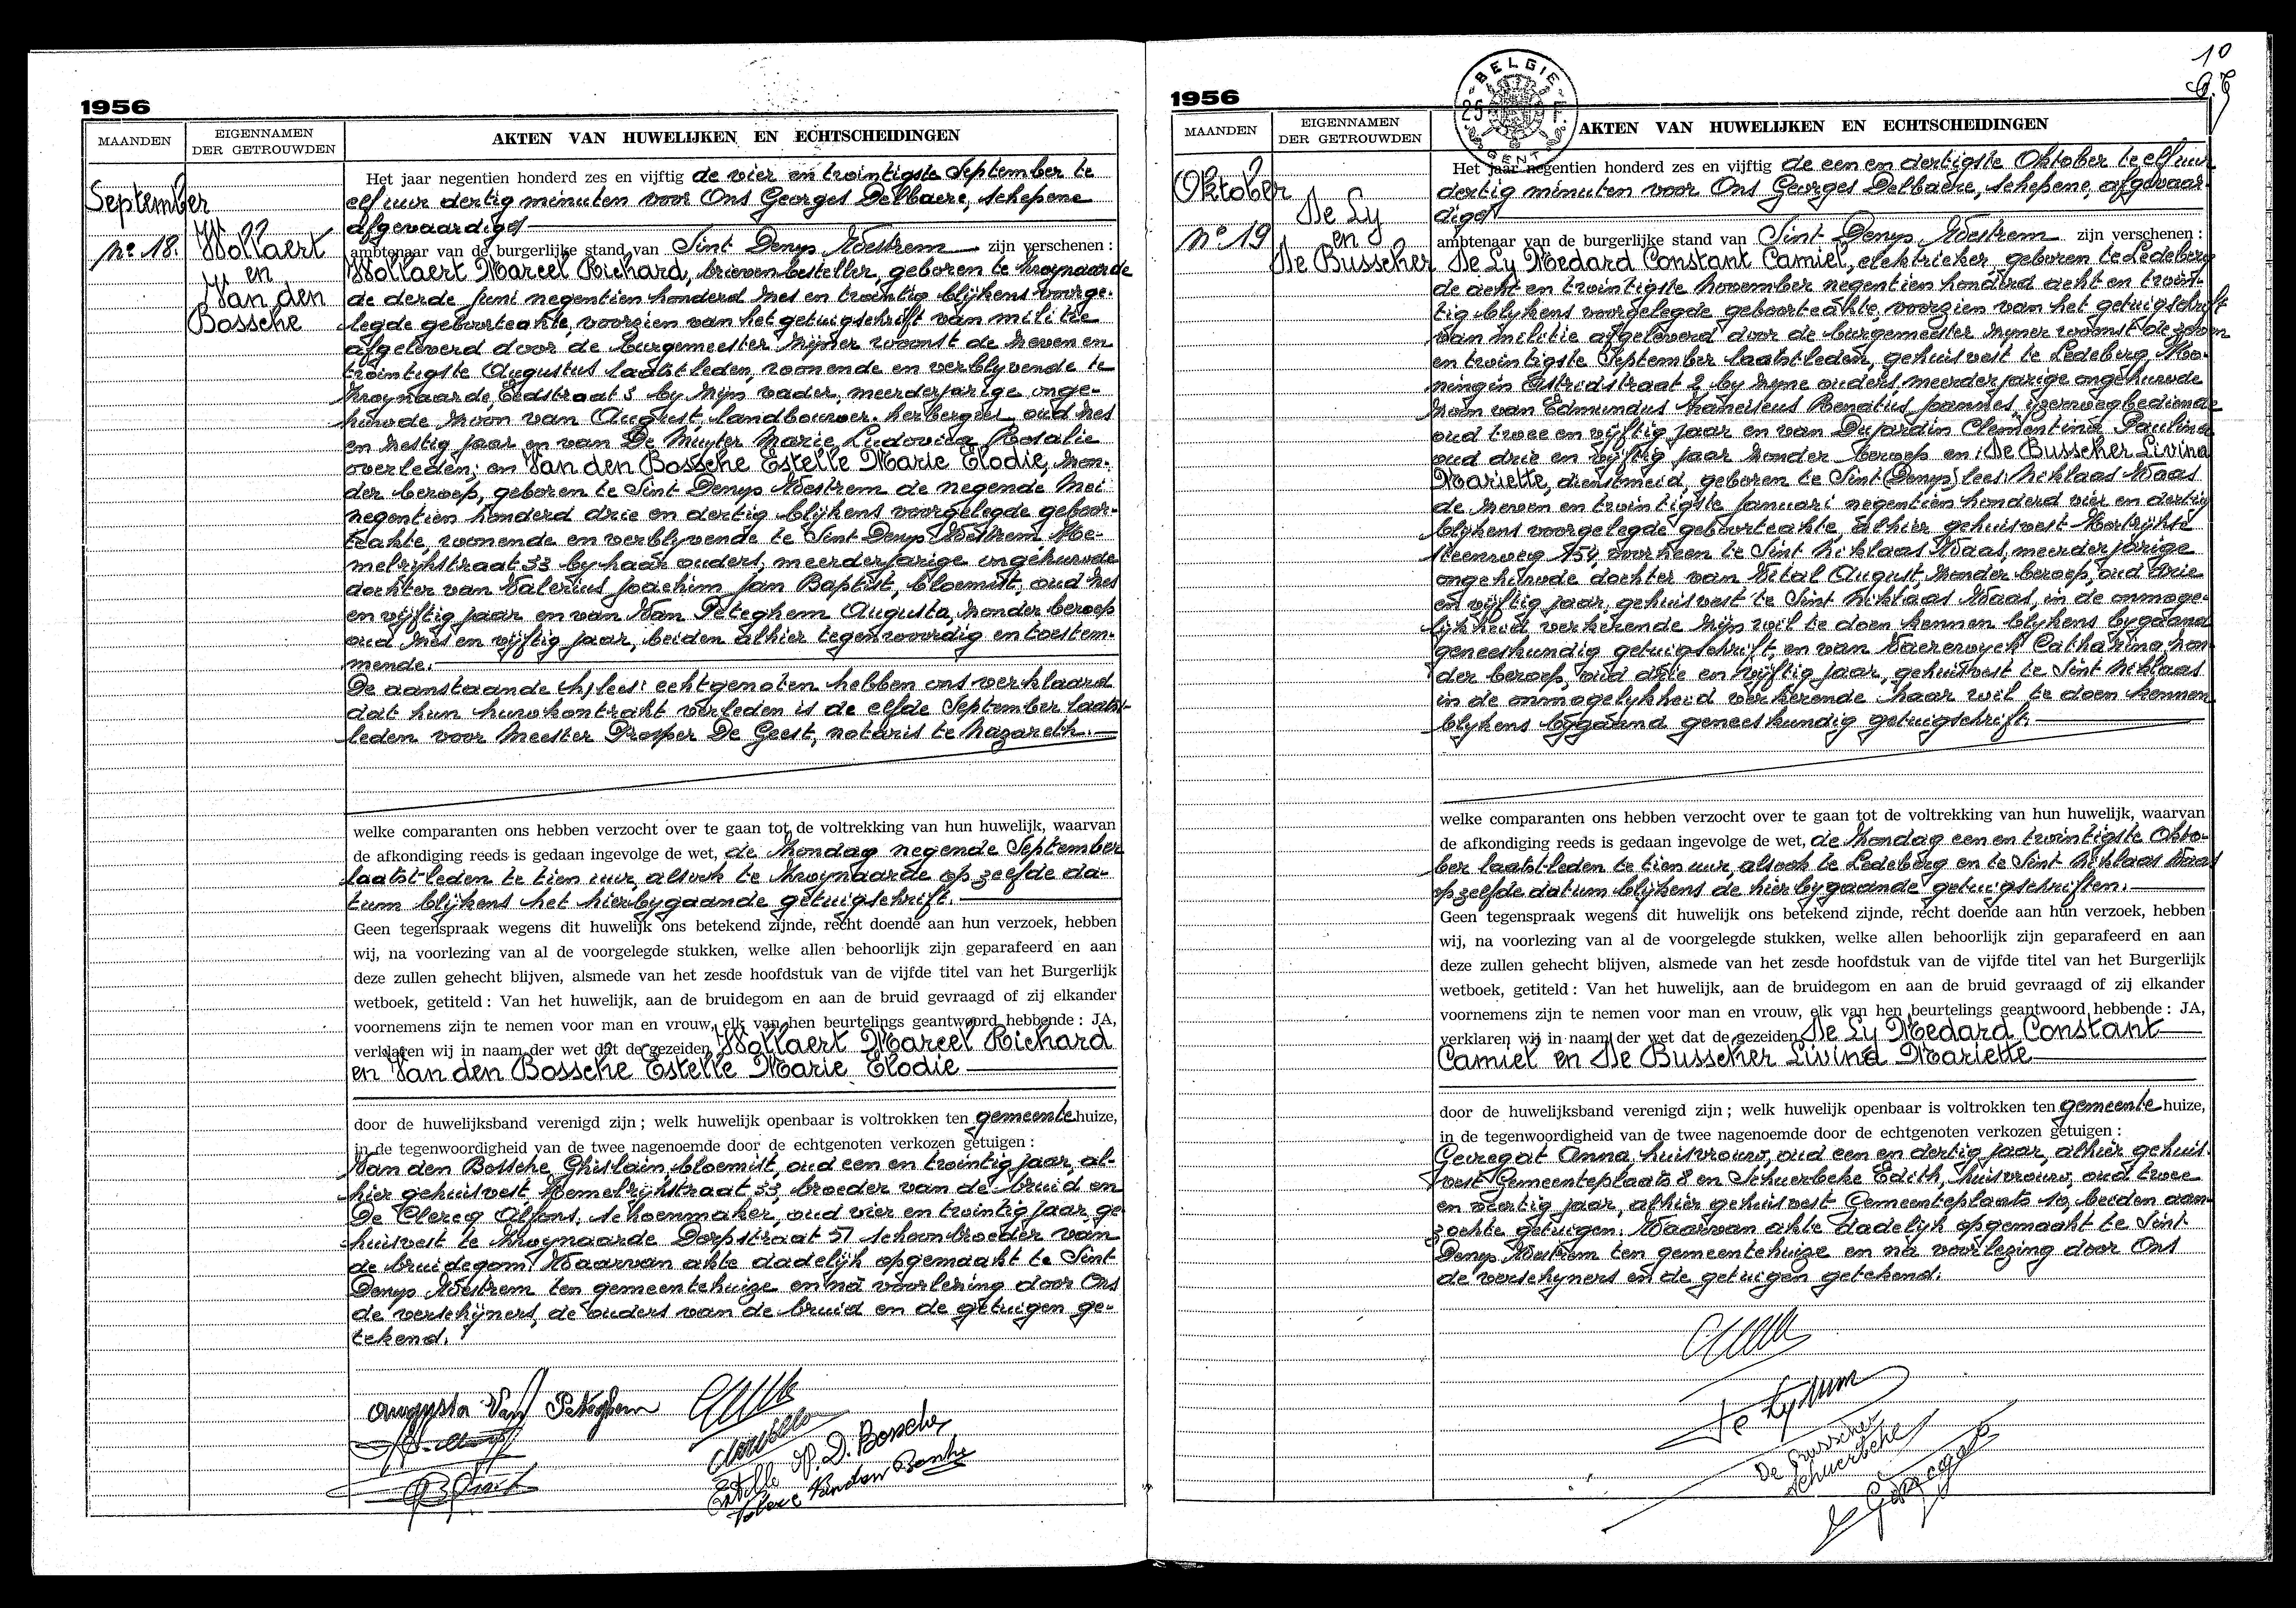 1956
MAANDEN
EIGENNAMEN
DER GETROUWDEN
AKTEN VAN HUWELIJKEN EN ECHTSCHEIDINGEN
September
No 18.
Wollaert
en
Van den
Bossche
Het jaar negentien honderd zes en vijftig de vier en twintigste September te
elf uur dertig minuten voor Ons Georges Delbaere, schepene
afgevaardigd
ambtenaar van de burgerlijke stand van Sint Denys Westrem zijn verschenen :
Wollaert Marcel Richard, brievenbesteller, geboren te Zwynaarde
de derde Juni negentien honderd zes en twintig blijkens voorge-
legde geboorteakte, voorzien van het getuigschrift van militie
afgeleverd door de burgemeester zijner woonst de zeven en
twintigste Augustus laatst-leden, wonende en verblyvende te
Zwynaarde, Eedstraat 3 by zijn vader, meerderjarige onge-
huwde zoon van August, landbouwer-herbergier, oud zes
en zestig jaar en van De Muyter Marie Ludovica Rosalie
overleden; en Van den Bossche Estelle Marie Elodie, zon-
der beroep, geboren te Sint Denys Westrem de negende Mei
negentien honderd drie en dertig blijkens voorgelegde geboor-
teakte, wonende en verblyvende te Sint Denys Westrem, He-
melrijkstraat 33 by haar ouders, meerderjarige ongehuwde
dochter van Valerius Joachim Jan Baptist, bloemist, oud zes
en vijftig jaar en van Van Peteghem Augusta, zonder beroep
oud zes en vijftig jaar, beiden alhier tegenwoordig en toestem-
mende.
De aanstaande (h) lees: echtgenoten hebben ons verklaard
dat hun huwkontrakt verleden is de elfde September laatst-
leden voor Meester Prosper De Geest, notaris te Nazareth.
welke comparanten ons hebben verzocht over te gaan tot de voltrekking van hun huwelijk, waarvan
de afkondiging reeds is gedaan ingevolge de wet, de Zondag negende September
laatst-leden te tien uur, alsook te Zwynaarde op zelfde da-
tum blijkens het hierbygaande getuigschrift.
Geen tegenspraak wegens dit huwelijk ons betekend zijnde, recht doende aan hun verzoek, hebben
wij, na voorlezing van al de voorgelegde stukken, welke allen behoorlijk zijn geparafeerd en aan
deze zullen gehecht blijven, alsmede van het zesde hoofdstuk van de vijfde titel van het Burgerlijk
wetboek, getiteld : Van het huwelijk, aan de bruidegom en aan de bruid gevraagd of zij elkander
voornemens zijn te nemen voor man en vrouw, elk van hen beurtelings geantwoord hebbende : JA,
verklaren wij in naam der wet dat de gezeiden Wollaert Marcel Richard
en Van den Bossche Estelle Marie Elodie
door de huwelijksband verenigd zijn ; welk huwelijk openbaar is voltrokken ten gemeentehuize,
in de tegenwoordigheid van de twee nagenoemde door de echtgenoten verkozen getuigen :
Van den Bossche Ghislain, bloemist, oud een en twintig jaar, al-
hier gehuisvest Hemelrijkstraat 33, broeder van de bruid en
De Clercq Alfons, schoenmaker, oud vier en twintig jaar, ge-
huisvest te Zwynaarde Dorpstraat 57 schoonbroeder van
de bruidegom. Waarvan akte dadelijk opgemaakt te Sint
Denys Westrem ten gemeentehuize en na voorlezing door Ons
de verschijners, de ouders van de bruid en de getuigen ge-
tekend.
Augusta Van Peteghem
Estelle V. D. Bossche
Valere Vanden Bossche
10
1956
BELGIE
25 F.
GENT
MAANDEN
EIGENNAMEN
DER GETROUWDEN
AKTEN VAN HUWELIJKEN EN ECHTSCHEIDINGEN
Oktober
No 19
De Ly
en
De Busscher
Het jaar negentien honderd zes en vijftig de een en dertigste Oktober te elf uur
dertig minuten voor Ons Georges Delbaere, schepene, afgevaar-
digd
ambtenaar van de burgerlijke stand van Sint Denys Westrem zijn verschenen :
De Ly Medard Constant Camiel, elektrieker, geboren te Ledeberg
de acht en twintigste November negentien honderd acht en twin-
tig blykens voorgelegde geboorteakte, voorzien van het getuigschrift
van militie afgeleverd door de burgemeester zijner woonst de zeven
en twintigste September laatst-leden, gehuisvest te Ledeberg, Ko-
ningin Astridstraat 2 by zyne ouders, meerderjarige ongehuwde
zoon van Edmundus Franciscus Renatus Joannes, ijzerwegbediende
oud twee en vijftig jaar en van Dujardin Clementina Paulina
oud drie en vijftig jaar zonder beroep en: De Busscher Livina
Mariette, dienstmeid, geboren te Sint (Denys) lees: Niklaas Waas
de zeven en twintigste Januari negentien honderd vier en dertig
blykens voorgelegde geboorteakte, alhier gehuisvest Kortrijkse
steenweg 154, voorheen te Sint Niklaas Waas, meerderjarige
ongehuwde dochter van Vital August, zonder beroep, oud drie
en vijftig jaar, gehuisvest te Sint Niklaas Waas, in de onmoge-
lijkheid verkerende zijn wil te doen kennen blykens bygaand
geneeskundig getuigschrift en van Vaererwyck Catharina, zon-
der beroep, oud drie en vijftig jaar, gehuisvest te Sint Niklaas
in de onmogelykheid verkerende haar wil te doen kennen
blykens bygaand geneeskundig getuigschrift.
welke comparanten ons hebben verzocht over te gaan tot de voltrekking van hun huwelijk, waarvan
de afkondiging reeds is gedaan ingevolge de wet, de Zondag een en twintigste Okto-
ber laatst-leden te tien uur, alsook te Ledeberg en te Sint Niklaas Waas
op zelfde datum blijkens de hierbygaande getuigschriften.
Geen tegenspraak wegens dit huwelijk ons betekend zijnde, recht doende aan hun verzoek, hebben
wij, na voorlezing van al de voorgelegde stukken, welke allen behoorlijk zijn geparafeerd en aan
deze zullen gehecht blijven, alsmede van het zesde hoofdstuk van de vijfde titel van het Burgerlijk
wetboek, getiteld : Van het huwelijk, aan de bruidegom en aan de bruid gevraagd of zij elkander
voornemens zijn te nemen voor man en vrouw, elk van hen beurtelings geantwoord hebbende : JA,
verklaren wij in naam der wet dat de gezeiden De Ly Medard Constant
Camiel en De Busscher Livina Mariette
door de huwelijksband verenigd zijn ; welk huwelijk openbaar is voltrokken ten gemeente huize,
in de tegenwoordigheid van de twee nagenoemde door de echtgenoten verkozen getuigen :
Gevregat Anna, huisvrouw, oud een en dertig jaar, alhier gehuis-
vest Gemeenteplaats 8 en Schuerbeke Edith, huisvrouw, oud twee
en veertig jaar, alhier gehuisvest Gemeenteplaats 10, beiden aan-
zochte getuigen. Waarvan akte dadelijk opgemaakt te Sint
Denys Westrem ten gemeentehuize en na voorlezing door Ons
de verschyners en de getuigen getekend.
De Ly
De Busscher
Schuerbeke